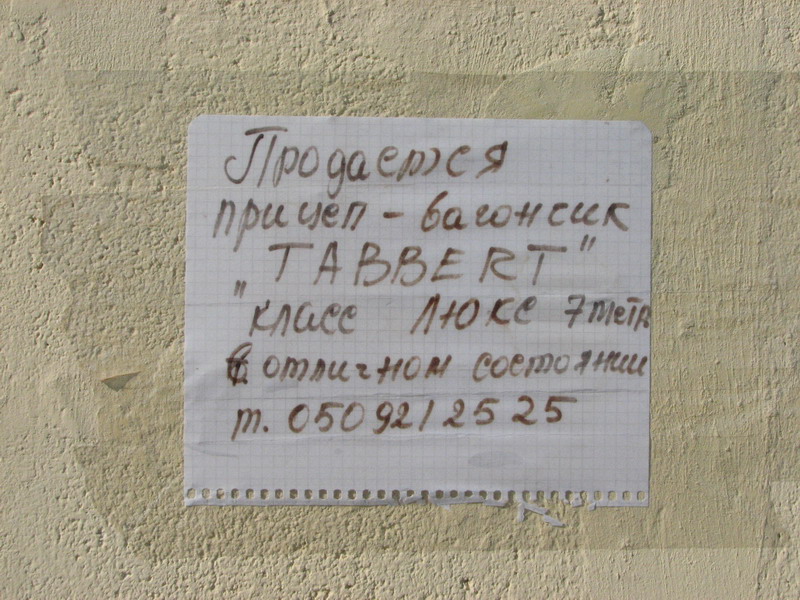 Продается
прицеп - вагончик
"TABBERT"
класс люкс 7 метр
в отличном состоянии
т. 050 921 25 25